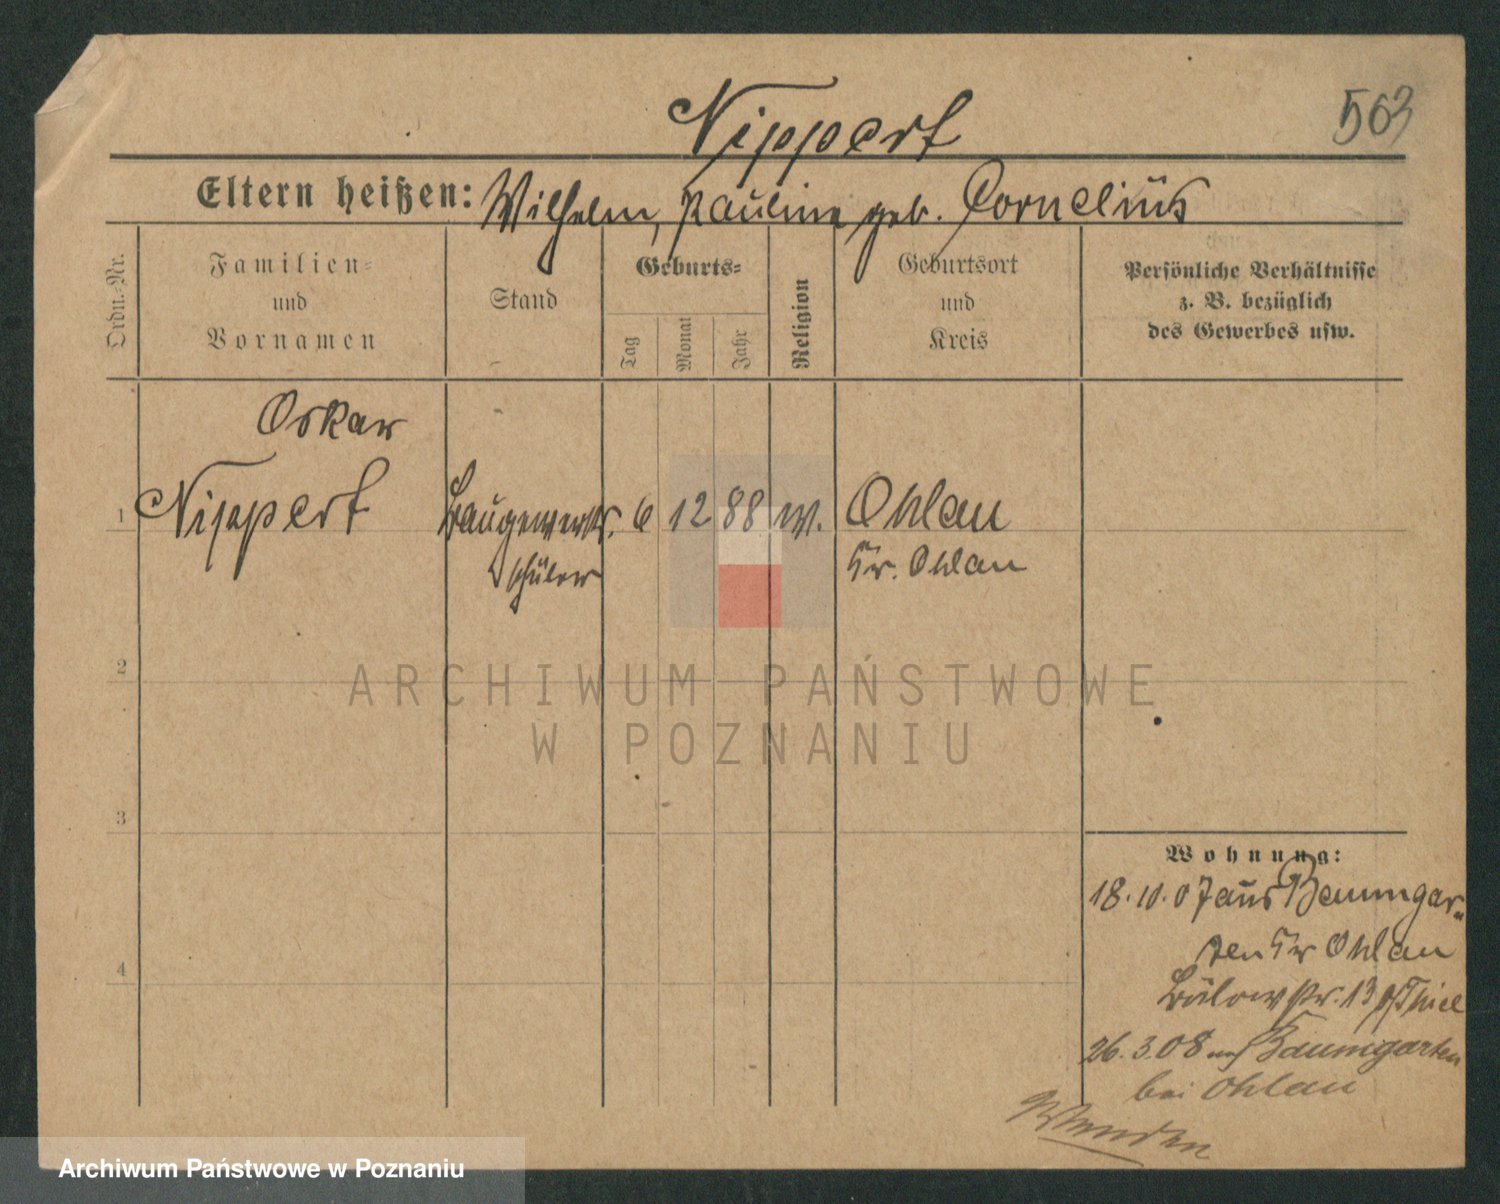 Nippert
563
Eltern heißen: Wilhelm, Pauline geb. Cornelius
Ordn.-Nr.
Familien-
und
Vornamen
Stand
Geburts-
Tag
Monat
Jahr
Religion
Geburtsort
und
Kreis
Persönliche Verhältnisse
z. B. bezüglich
des Gewerbes usw.
Oskar
1 Nippert Baugewerks. 6 12 88 ev. Ohlau
schüler Kr. Ohlau
2
ARCHIWUM PAŃSTWOWE
W POZNANIU
3
4
Wohnung:
18.10.07 aus Baumgar-
ten Kr Ohlau
Bülowstr. 13 b/Thiel
26.3.08 nach Baumgarten
bei Ohlau
Wenden
Archiwum Państwowe w Poznaniu